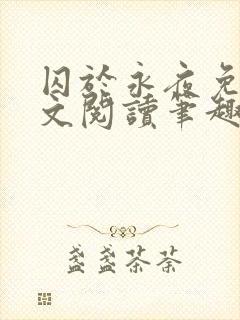 囚於永夜免
文閱讀筆趣
盞盞茶荼